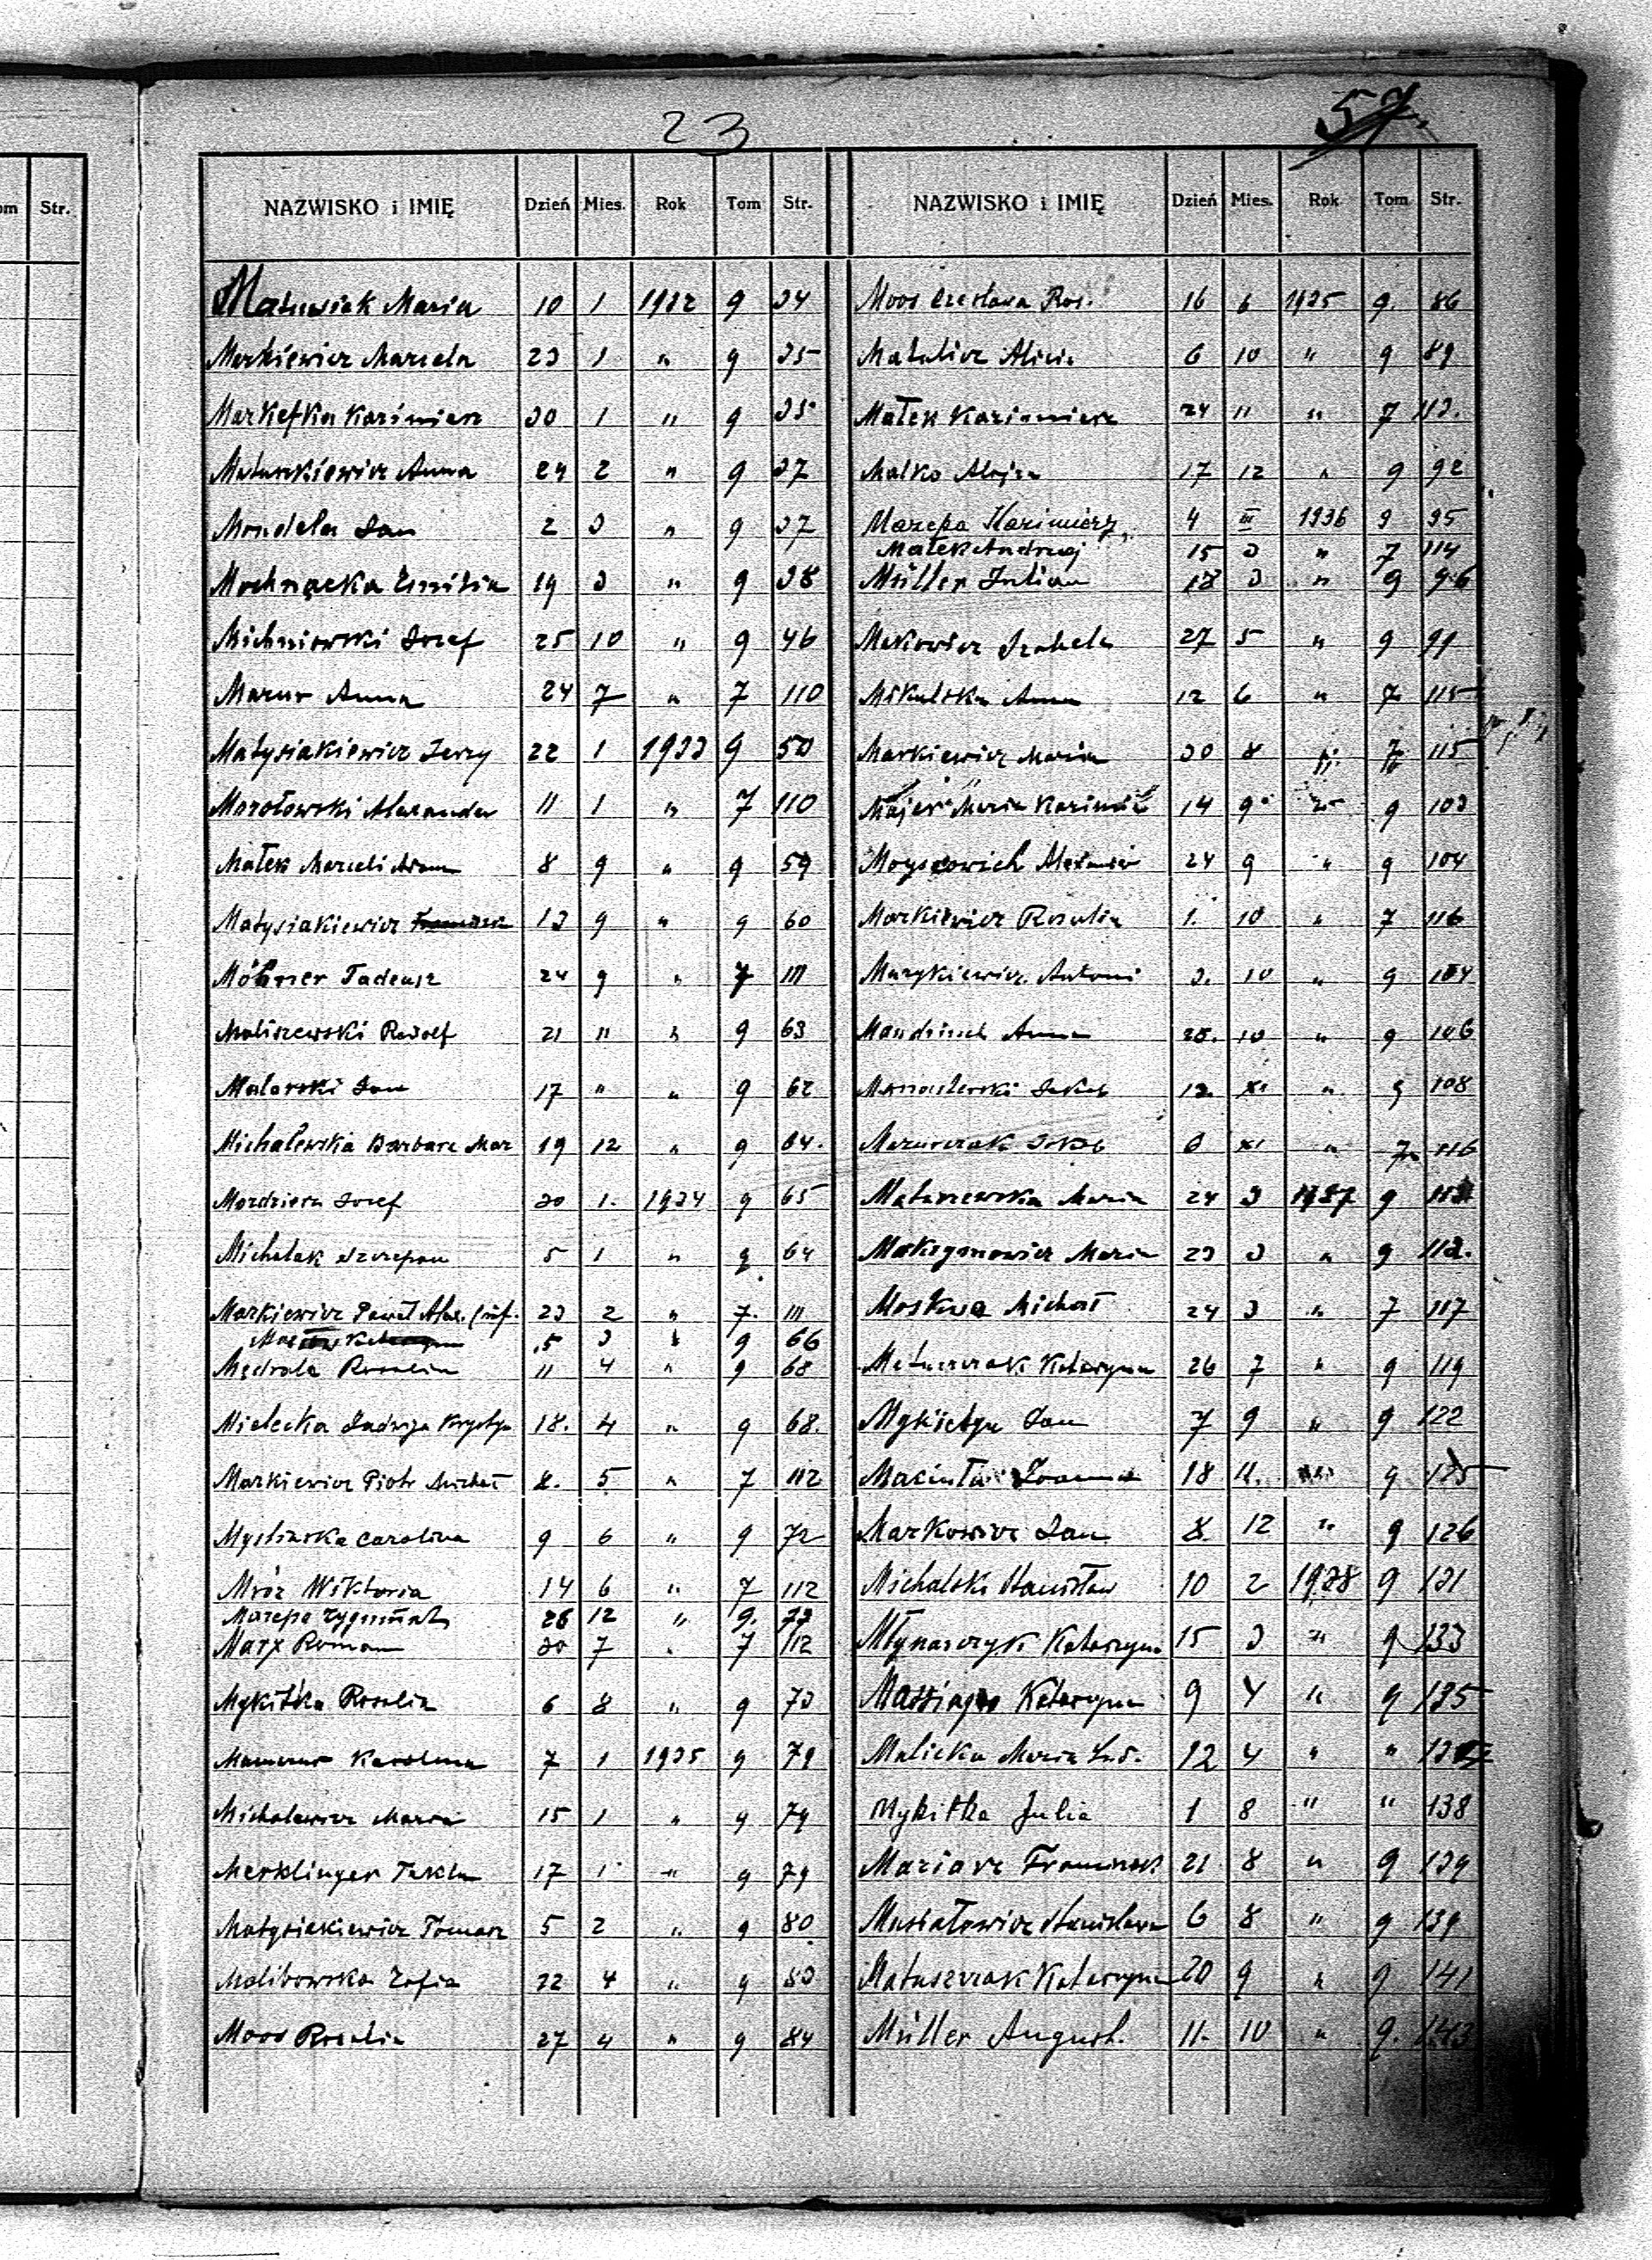 23
57.
om Str.
NAZWISKO i IMIĘ Dzień Mies. Rok Tom Str.
Matusiak Maria 10 1 1932 9 34
Markiewicz Marcela 23 1 " 9 35
Markefka Kazimierz 30 1 " 9 35
Matuszkiewicz Anna 24 2 " 9 37
Mondela Jan 2 3 " 9 37
Mochnacka Emilia 19 3 " 9 38
Michniowski Józef 25 10 " 9 46
Mazur Anna 24 7 " 7 110
Matysiakiewicz Jerzy 22 1 1933 9 50
Marołowski Alexander 11 1 " 7 110
Małek Marceli Adam 8 9 " 9 59
Matysiakiewicz 13 9 " 9 60
Möhner Tadeusz 24 9 " 7 111
Maliszewski Rudolf 21 11 " 9 63
Malarski Jan 17 " " 9 62
Michalewska Barbara Mar 19 12 " 9 64.
Mozdzierz Józef 30 1. 1934 9 65
Michalak Szczepan 5 1 " 9 64
Markiewicz Paweł Alex. (inf. 23 2 " 7. 111
5 3 " 9 66
Mędrala Rozalia 11 4 " 9 68
Mielecka Jadwiga Krysty 18. 4 " 9 68.
Markiewicz Piotr Michał 8. 5 " 7 112
Myslinska Carolina 9 6 " 9 72
Mróz Wiktoria 14 6 " 7 112
Mazepa Zygmunt 26 12 " 9. 77
Marx Roman 30 7 " 7 112
Mykitka Rozalia 6 8 " 9 73
Mamczur Karolina 7 1 1935 9 79
Michalewicz Maria 15 1 " 9 79
Merklinger Tekla 17 1 " 9 79
Matysiakiewicz Tomasz 5 2 " 9 80
Malinowska Zofia 22 4 " 9 83
Moos Rozalia 27 4 " 9 84
NAZWISKO i IMIĘ Dzień Mies. Rok Tom Str.
Moos Czesława Roz. 16 6 1935 9. 86
Matulicz Alicia 6 10 " 9 89
Małek Kazimierz 24 11 " 7 113.
Malko Alojza 17 12 " 9 92
Mazepa Kazimierz, 4 III 1936 9 95
Małek Andrzej 15 3 " 7 114
Müller Julian 18 3 " 9 96
Makowicz Izabela 27 5 " 9 99
Mikulska Anna 12 6 " 7 115
Markiewicz Maria 30 8 " 7 115
Majer Maria Kazimi 14 9 " 9 103
Moyseowich 24 9 " 9 104
Markiewicz Rozalia 1. 10 " 7 116
Mazykiewicz Antoni 3. 10 " 9 104
Anna 25. 10 " 9 106
Monasterski Jakob 12. XI " 9 108
Mazurczak Jakob 6 XI " 7 116
Matuszewska Maria 24 3 1937 9
Maksymowicz Maria 23 3 " 9 112.
Moskwa Michał 24 3 " 7 117
Matuszczak Katarzyna 26 7 " 9 119
Mykietyn Jan 7 9 " 9 122
Maciuła Joanna 18 11. 9 125
Markowicz Jan 8. 12 " 9 126
Michalski Stanisław 10 2 1938 9 131
Młynarczyk Katarzyna 15 3 " 9 133
Katarzyna 9 4 " 9 135
Malicka Maria Lud. 12 4 " "
Mykitka Julia 1 8 " " 138
Mariasz Franciszek 21 8 " 9 139
Musiałowicz Stanisława 6 8 " 9 139
Matuszczak Katarzyna 20 9 " 9 141
Müller August. 11. 10 " 9. 143